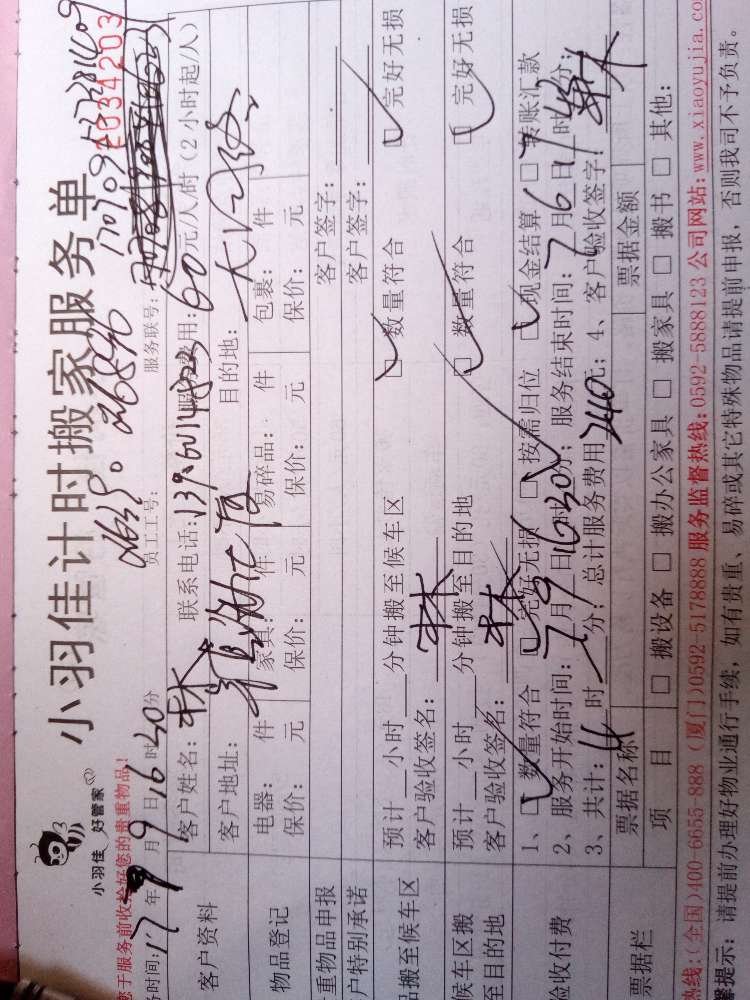 小羽佳计时搬家服务单
小羽佳 好管家
2034203
您于服务前收拾好您的贵重物品!
员工工号:
服务联号:
务时间:17年 月9日16时30分
客户资料
客户姓名:林
联系电话:
服务费用:60元/人/时(2小时起/人)
客户地址:
目的地:
物品登记
电器: 件 家具: 件 易碎品: 件 包裹: 件
保价: 元 保价: 元 保价: 元 保价: 元
重物品申报
客户签字:
户特别承诺
客户签字:
品搬至候车区
预计 小时 分钟搬至候车区 □数量符合 □完好无损
客户验收签名:林
候车区搬至目的地
预计 小时 分钟搬至目的地 □数量符合 □完好无损
客户验收签名:林
验收付费
1、□数量符合 □完好无损 □按需归位 □现金结算 □转账汇款
2、服务开始时间:7月9日16时30分;服务结束时间:7月 日 时 分;
3、共计:4时 分;总计服务费用240元;4、客户验收签字:林
票据栏
票据名称 票据金额
项目 □搬设备 □搬办公家具 □搬家具 □搬书 □其他:
热线:(全国)400-6655-888 (厦门)0592-5178888 服务监督热线:0592-5888123 公司网站:www.xiaoyujia.co
馨提示:请提前办理好物业通行手续,如有贵重、易碎或其它特殊物品请提前申报,否则我司不予负责。